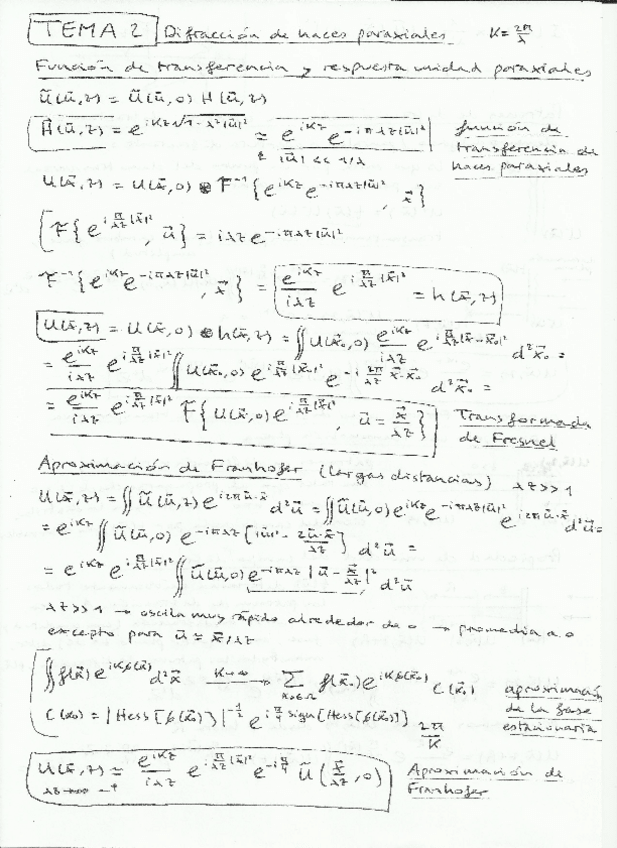 TEMA 2 Difracción de haces paraxiales K = 2π/λ
Función de transferencia y respuesta unidad paraxiales
Ũ(ū,z) = Ũ(ū,0) H(ū,z)
H̃(ū,z) = e^{iKz√(1-λ²|ū|²)} ≃ e^{iKz} e^{-iπλz|ū|²} función de
|ū| << 1/λ transferencia de
haces paraxiales
U(x̄,z) = U(x̄,0) ⊗ F⁻¹{e^{iKz} e^{-iπλz|ū|²}, x̄}
F{e^{i π/λz |x̄|²}, ū} = iλz e^{-iπλz|ū|²}
F⁻¹{e^{iKz} e^{-iπλz|ū|²}, x̄} = e^{iKz}/iλz e^{i π/λz |x̄|²} = h(x̄,z)
U(x̄,z) = U(x̄,0) ⊗ h(x̄,z) = ∬ U(x̄₀,0) e^{iKz}/iλz e^{i π/λz |x̄-x̄₀|²} d²x̄₀ =
= e^{iKz}/iλz e^{i π/λz |x̄|²} ∬ U(x̄₀,0) e^{i π/λz |x̄₀|²} e^{-i 2π/λz x̄·x̄₀} d²x̄₀ =
= e^{iKz}/iλz e^{i π/λz |x̄|²} F{U(x̄,0) e^{i π/λz |x̄|²}, ū = x̄/λz} Transformada
de Fresnel
Aproximación de Franhofer (largas distancias) λz >> 1
U(x̄,z) = ∬ Ũ(ū,z) e^{i2πū·x̄} d²ū = ∬ Ũ(ū,0) e^{iKz} e^{-iπλz|ū|²} e^{i2πū·x̄} d²ū =
= e^{iKz} ∬ Ũ(ū,0) e^{-iπλz[|ū|² - 2ū·x̄/λz]} d²ū =
= e^{iKz} e^{i π/λz |x̄|²} ∬ Ũ(ū,0) e^{-iπλz|ū - x̄/λz|²} d²ū
λz >> 1 → oscila muy rápido alrededor de 0 → promedia a 0
excepto para ū ≃ x̄/λz
∬ f(x̄) e^{iKϕ(x̄)} d²x̄ K→∞ → Σ_{x₀∈Ω} f(x̄₀) e^{iKϕ(x̄₀)} C(x̄₀) aproximación
de la fase
C(x₀) = |Hess[ϕ(x̄₀)]|^{-1/2} e^{i π/4 sign[Hess[ϕ(x̄₀)]]} 2π/K estacionaria
U(x̄,z) ≃ e^{iKz}/iλz e^{i π/λz |x̄|²} e^{-i π/4} Ũ(x̄/λz, 0) Aproximación de
Franhofer